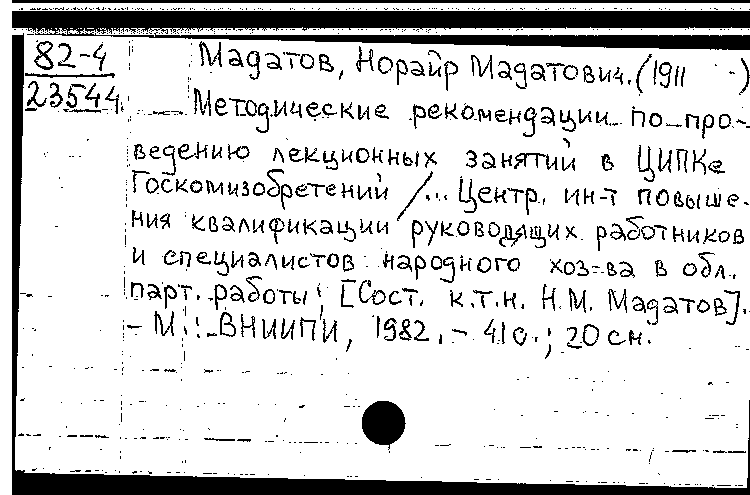 82-4
23544
Мадатов, Норайр Мадатович. (1911 - )
Методические рекомендации по про-
ведению лекционных занятий в ЦИПКе
Госкомизобретений /... Центр. ин-т повыше-
ния квалификации руководящих работников
и специалистов народного хоз-ва в обл.
пат. работы; [Сост. к.т.н. Н.М. Мадатов].
- М.: ВНИИПИ, 1982. - 41 с.; 20 см.